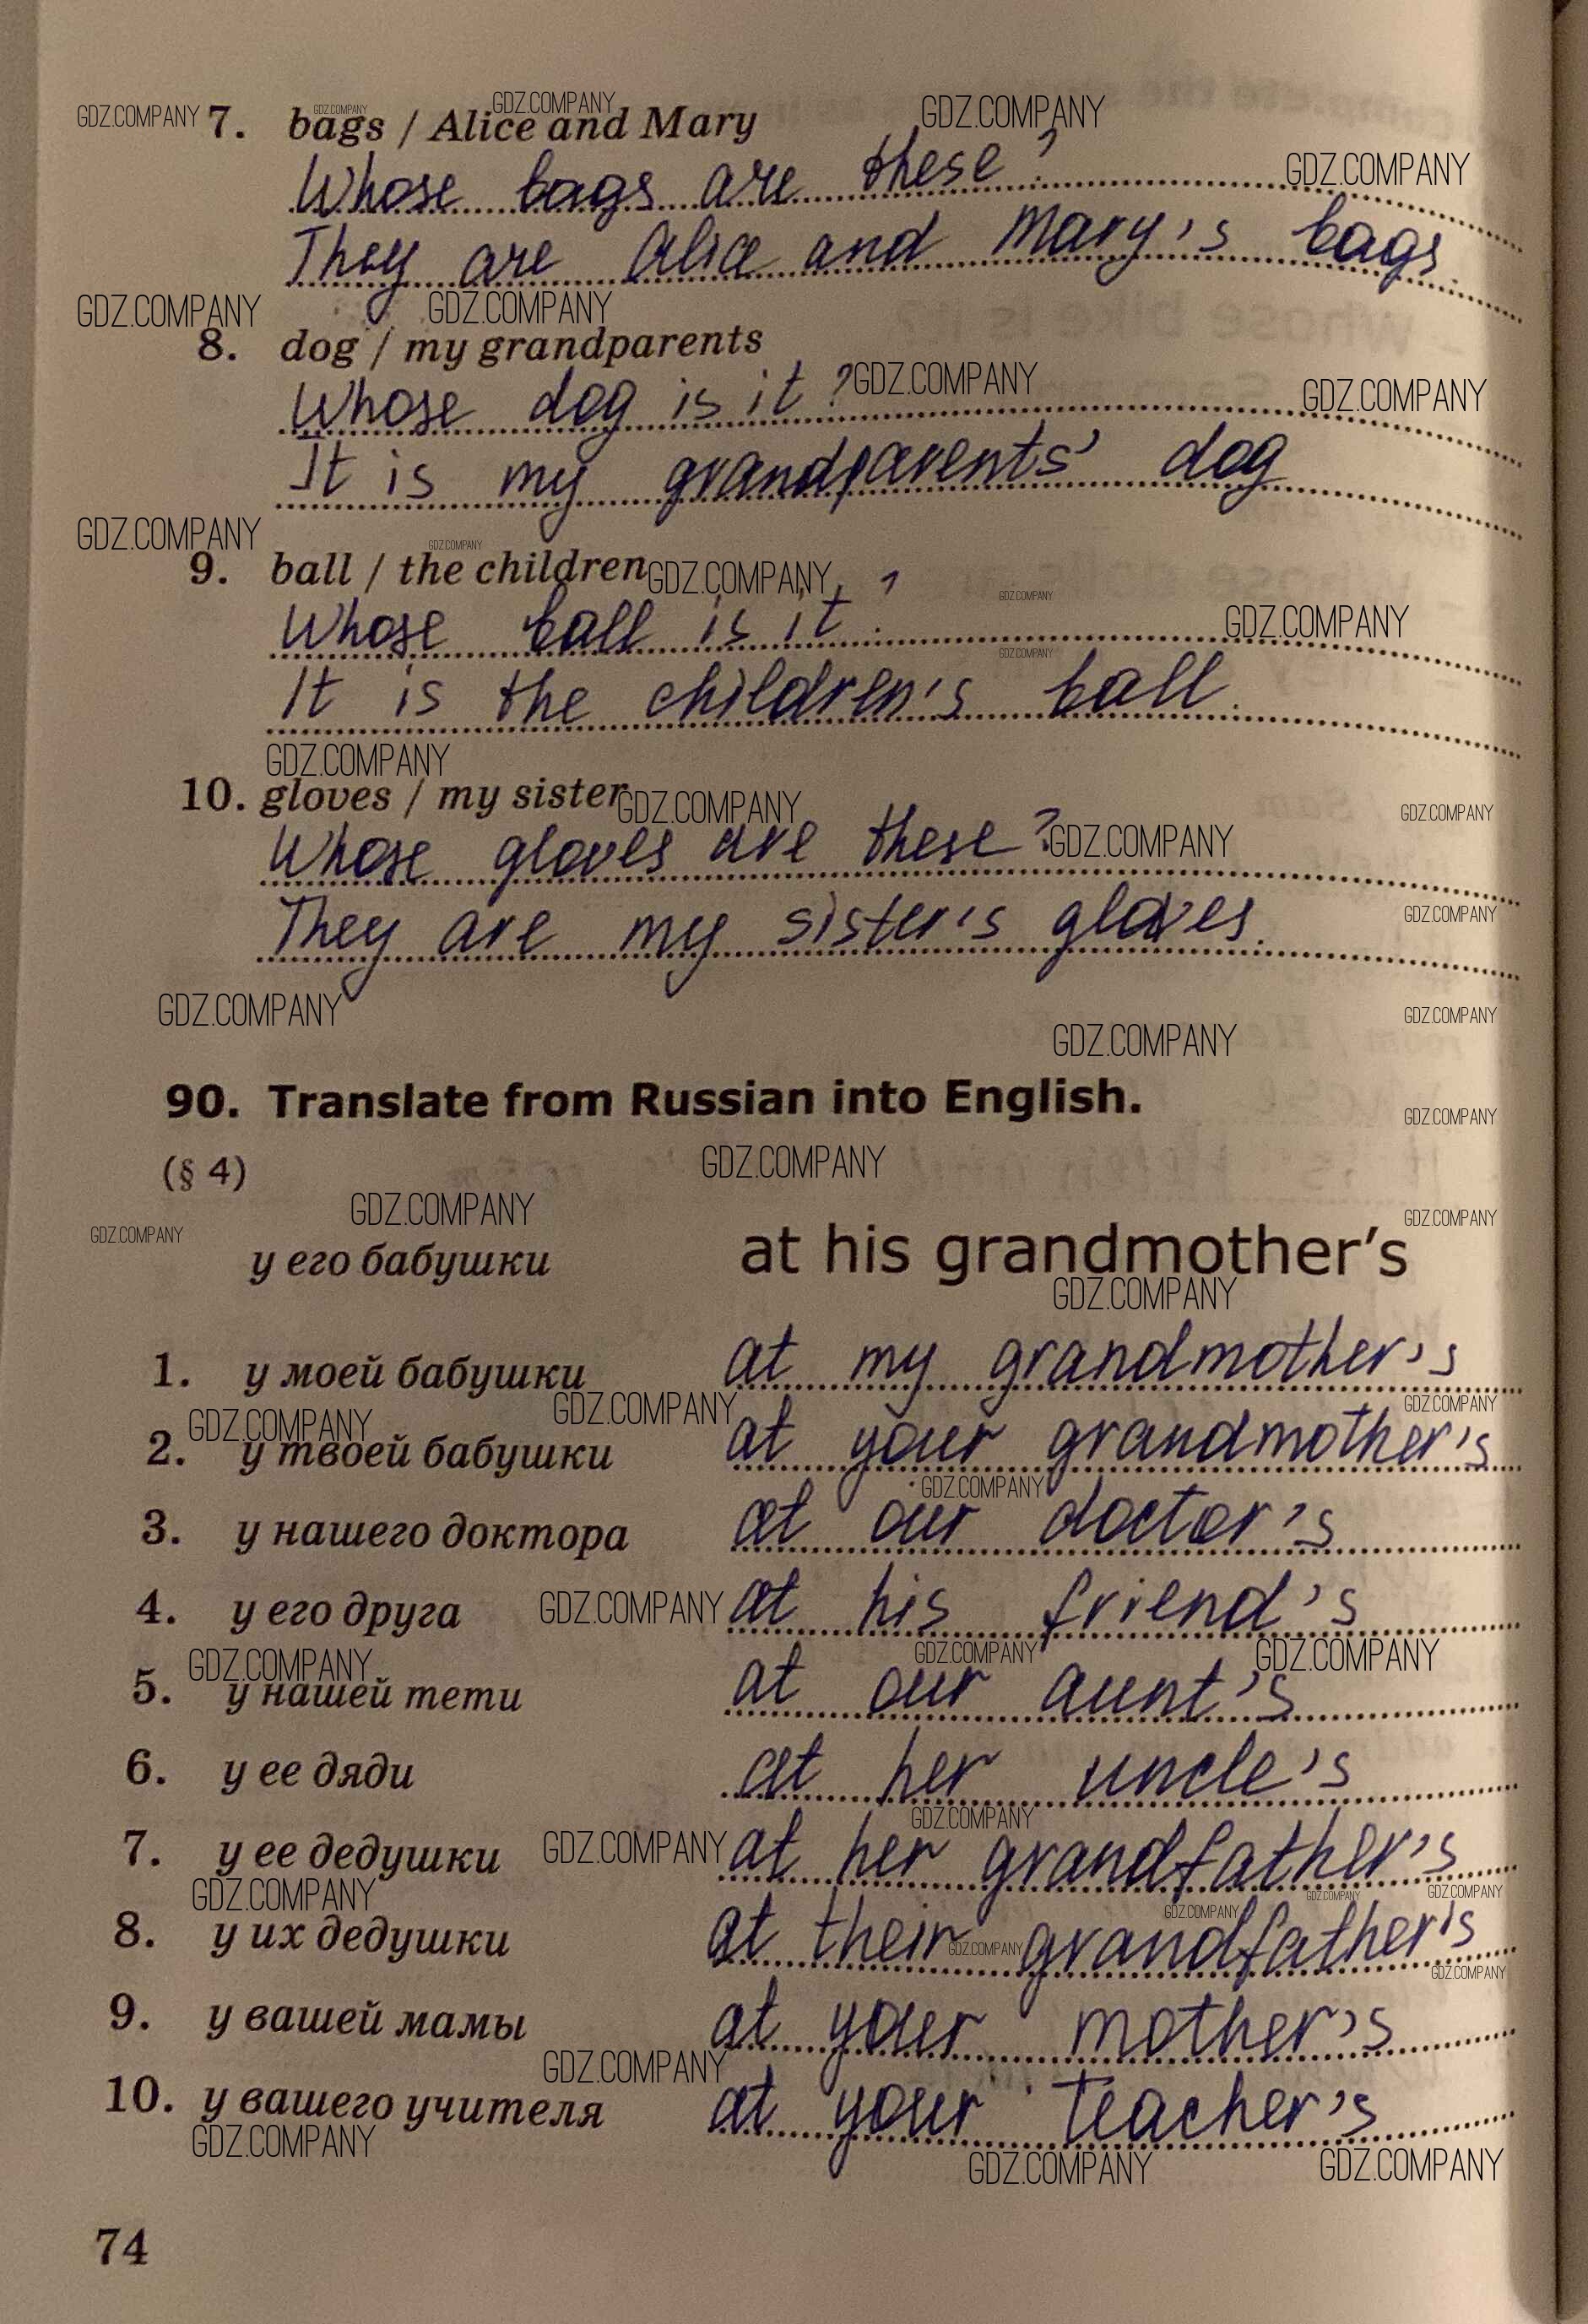 7. bags / Alice and Mary
Whose bags are these?
They are Alice and Mary's bags.
8. dog / my grandparents
Whose dog is it?
It is my grandparents' dog
9. ball / the children
Whose ball is it?
It is the children's ball.
10. gloves / my sister
Whose gloves are these?
They are my sister's gloves.
90. Translate from Russian into English.
(§ 4)
у его бабушки at his grandmother's
1. у моей бабушки at my grandmother's
2. у твоей бабушки at your grandmother's
3. у нашего доктора at our doctor's
4. у его друга at his friend's
5. у нашей тети at our aunt's
6. у ее дяди at her uncle's
7. у ее дедушки at her grandfather's
8. у их дедушки at their grandfather's
9. у вашей мамы at your mother's
10. у вашего учителя at your teacher's
74
GDZ.COMPANY